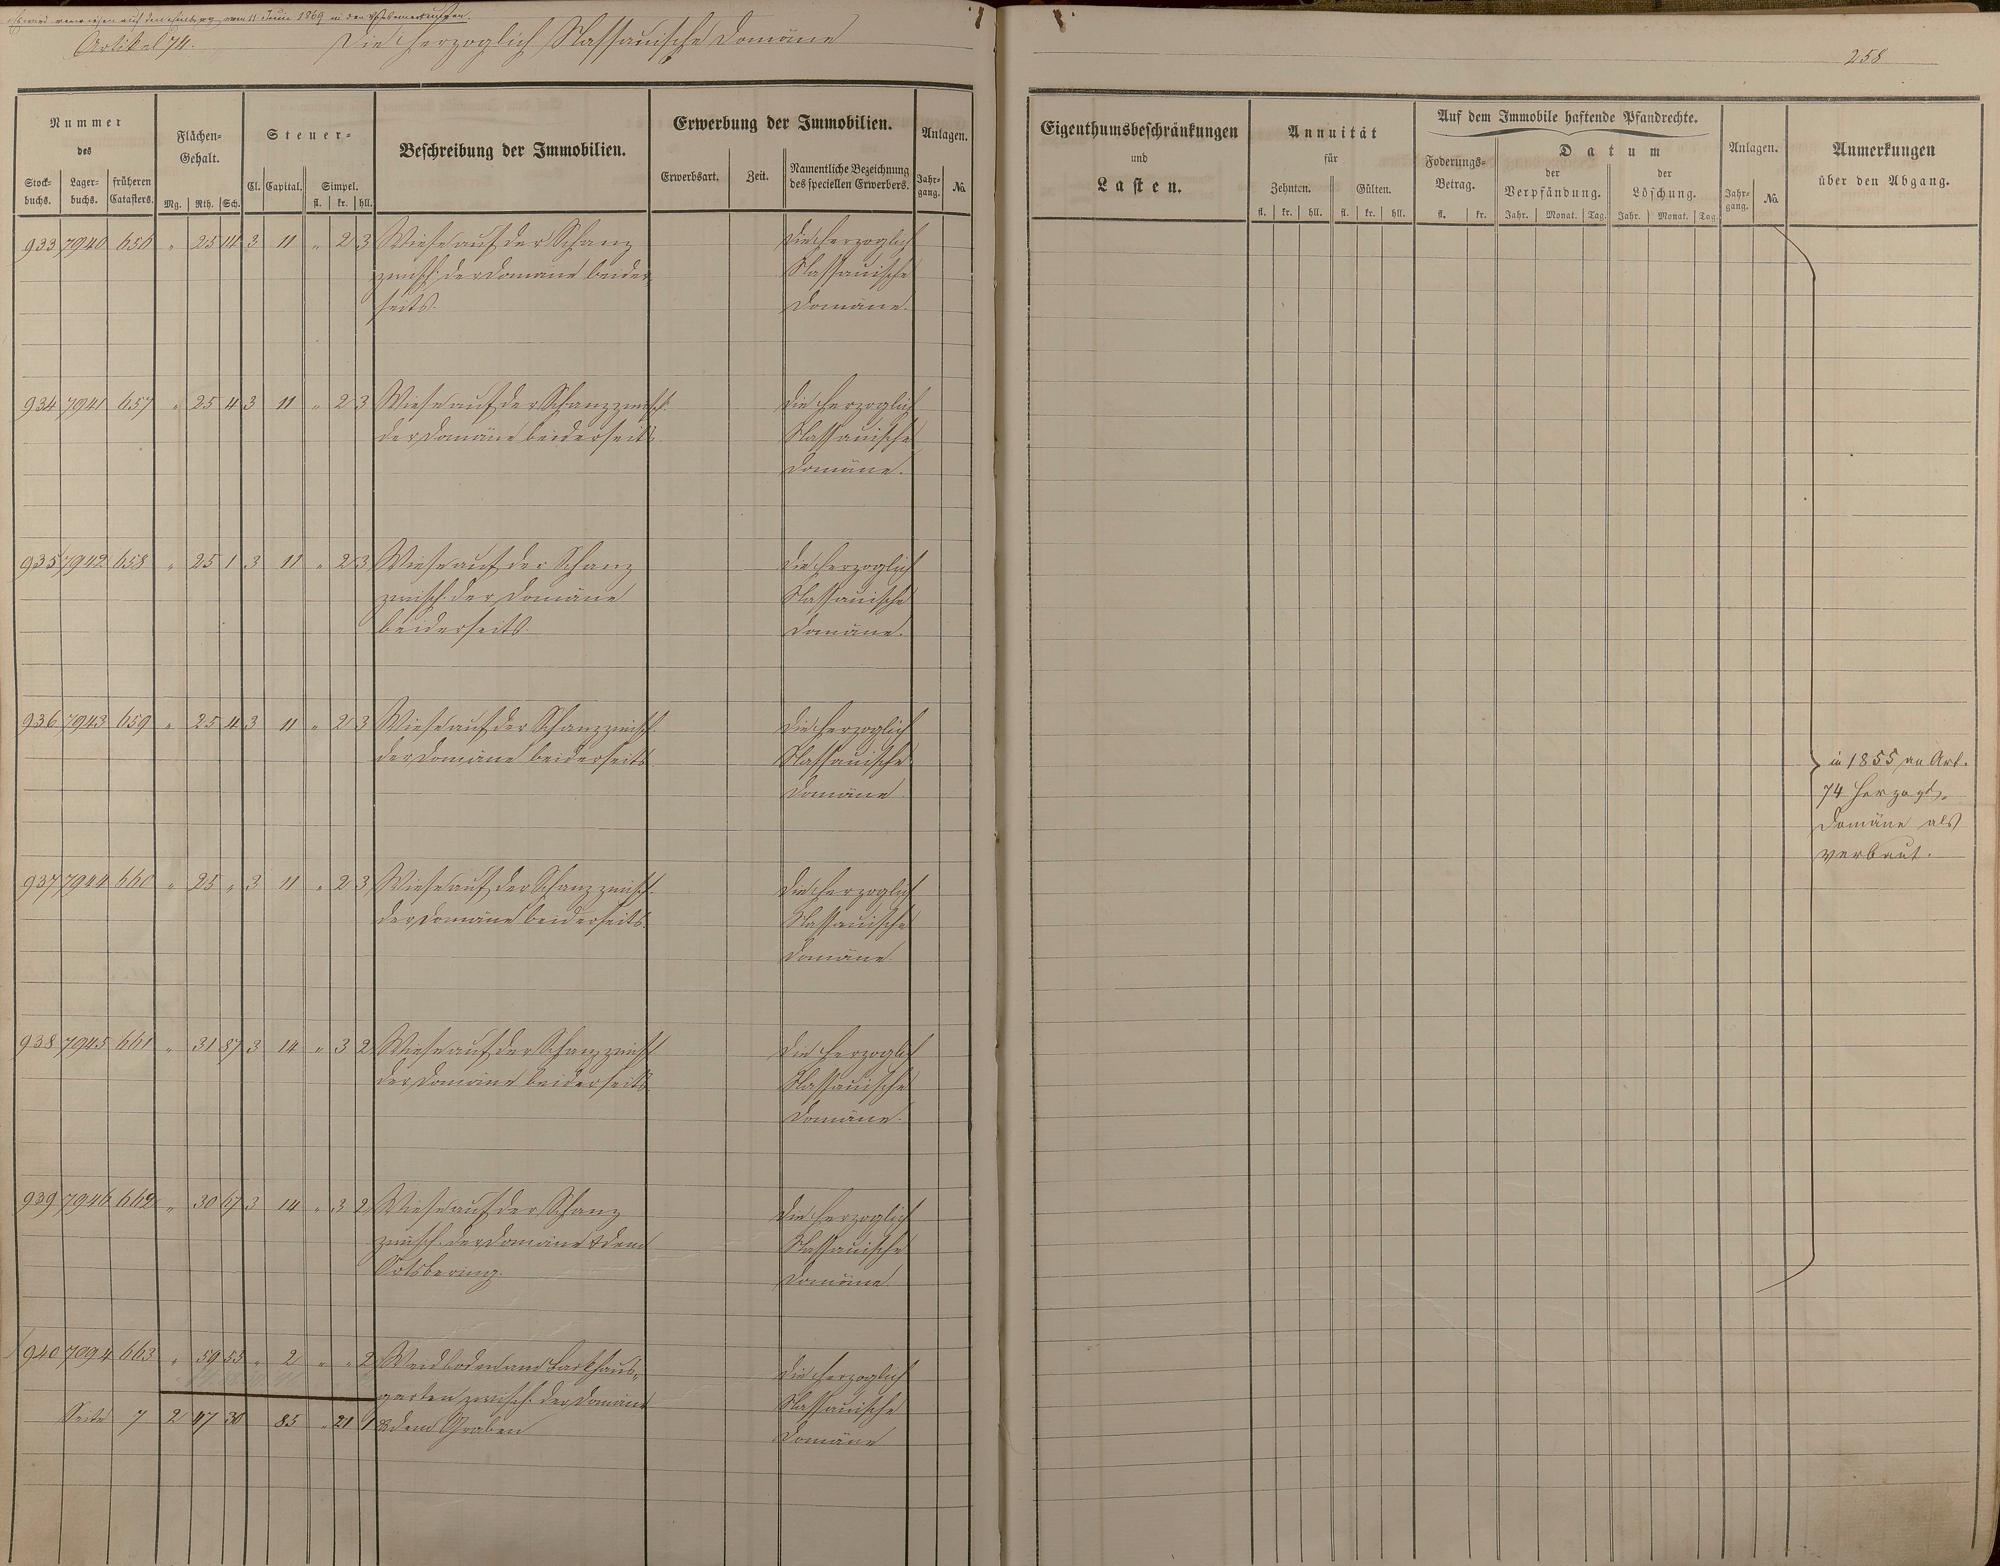 wird verwiesen auf den vom 11 Juni 1869 in den Vorbemerkungen.
Artikel 74. Die Herzoglich Nassauische Domäne
258
Nummer des
Stock-buchs. Lager-buchs. früheren Catasters.
Flächen-Gehalt.
Mg. Rth. Sch.
Steuer-
Cl. Capital. Simpel.
fl. kr. hll.
Beschreibung der Immobilien.
Erwerbung der Immobilien.
Erwerbsart. Zeit. Namentliche Bezeichnung des speciellen Erwerbers.
Anlagen.
Jahr-gang. No.
Eigenthumsbeschränkungen und Lasten.
Annuität für
Zehnten. Gülten.
fl. kr. hll. fl. kr. hll.
Auf dem Immobile haftende Pfandrechte.
Foderungs-Betrag.
fl. kr.
Datum
der Verpfändung. der Löschung.
Jahr. Monat. Tag. Jahr. Monat. Tag.
Anlagen.
Jahr-gang. No.
Anmerkungen über den Abgang.
933 7940 656 " 25 14 3 11 " 2 3 Wiese auf der Schanz Die Herzoglich
zwisch. der Domäne beider- Nassauische
seits. Domäne.
934 7941 657 " 25 4 3 11 " 2 3 Wiese auf der Schanz zwisch. Die Herzoglich
der Domäne beiderseits Nassauische
Domäne.
935 7942 658 " 25 1 3 11 " 2 3 Wiese auf der Schanz Die Herzoglich
zwisch. der Domäne Nassauische
beiderseits. Domäne.
936 7943 659 " 25 4 3 11 " 2 3 Wiese auf der Schanz zwisch. Die Herzoglich
der Domäne beiderseits Nassauische
Domäne
937 7944 660 " 25 " 3 11 " 2 3 Wiese auf der Schanz zwisch. Die Herzoglich
der Domäne beiderseits. Nassauische
Domäne
938 7945 661 " 31 87 3 14 " 3 2 Wiese auf der Schanz zwisch Die Herzoglich
der Domäne beiderseits Nassauische
Domäne.
939 7946 662 " 30 67 3 14 " 3 2 Wiese auf der Schanz Die Herzoglich
zwisch. der Domäne & dem Nassauische
Ortsbering. Domäne
940 7094 663 " 59 53 " 2 " " 2 Weidboden am Backhaus- Die Herzoglich
garten zwisch. der Domäne Nassauische
Seite 7 2 47 30 85 " 21 1 & dem Graben Domäne
in 1855 an Art.
74 Herzogl.
Domäne als
verbaut.